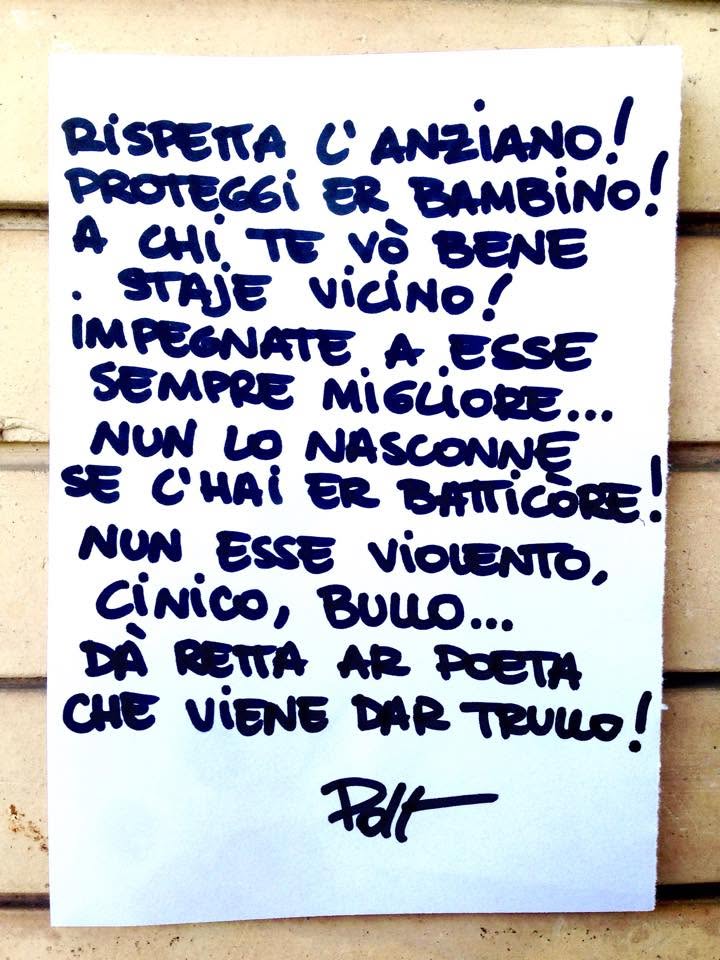 RISPETTA L'ANZIANO!
PROTEGGI ER BAMBINO!
A CHI TE VÒ BENE
STAJE VICINO!
IMPEGNATE A ESSE
SEMPRE MIGLIORE...
NUN LO NASCONNE
SE C'HAI ER BATTICÒRE!
NUN ESSE VIOLENTO,
CINICO, BULLO...
DÀ RETTA AR POETA
CHE VIENE DAR TRULLO!